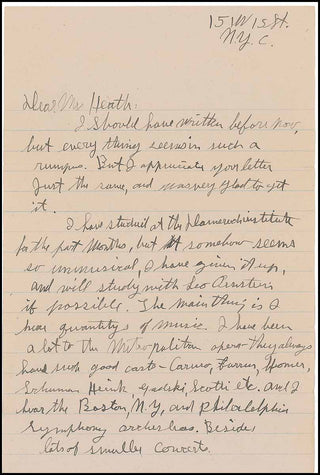 151 W 15 St.
N.Y.C.
Dear Mr Heath:
I should have written before now,
but every thing seems in such a
rumpus. But I appreciate your letter
just the same, and was very glad to get
it.
I have studied at the institute
for the past months, but it somehow seems
so unmusical, I have given it up,
and will study with Leo Ornstein
if possible. The main thing is I
hear quantitys of music. I have been
a lot to the Metropolitan opera they always
have such good casts - Caruso, Farrar, Homer,
Schuman Heink, Gadski, Scotti etc. and I
hear the Boston, N.Y., and Philadelphia
Symphony orchestras. Besides
lots of smaller concerts.